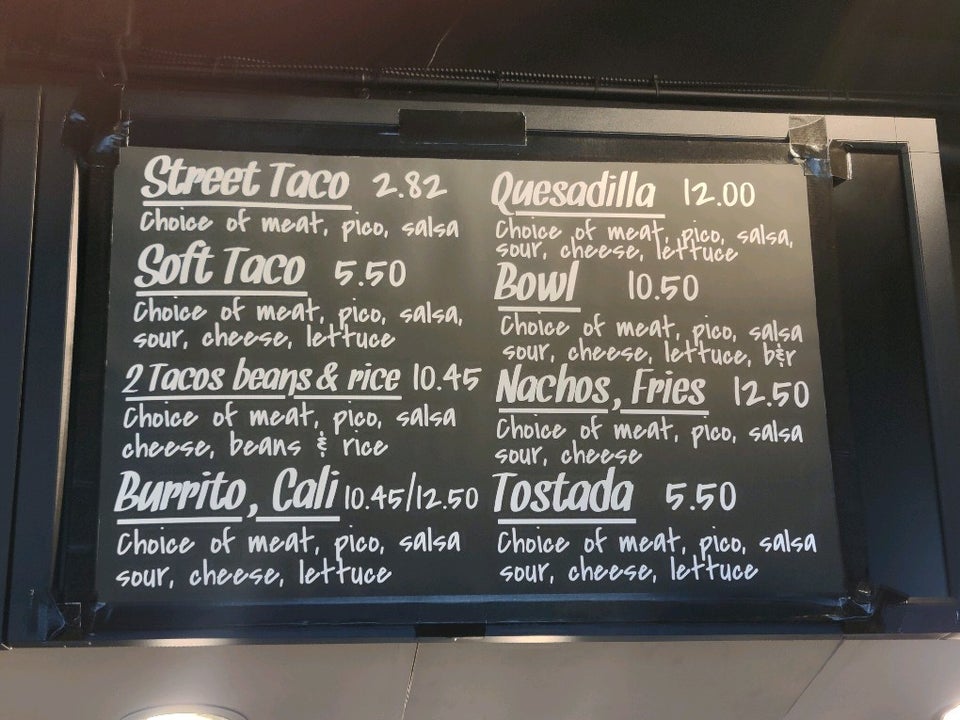 Street Taco 2.82
Choice of meat, pico, salsa
Soft Taco 5.50
Choice of meat, pico, salsa,
sour, cheese, lettuce
2 Tacos beans & rice 10.45
Choice of meat, pico, salsa
cheese, beans & rice
Burrito, Cali 10.45/12.50
Choice of meat, pico, salsa
sour, cheese, lettuce
Quesadilla 12.00
Choice of meat, pico, salsa,
sour, cheese, lettuce
Bowl 10.50
Choice of meat, pico, salsa
sour, cheese, lettuce, b&r
Nachos, Fries 12.50
Choice of meat, pico, salsa
sour, cheese
Tostada 5.50
Choice of meat, pico, salsa
sour, cheese, lettuce